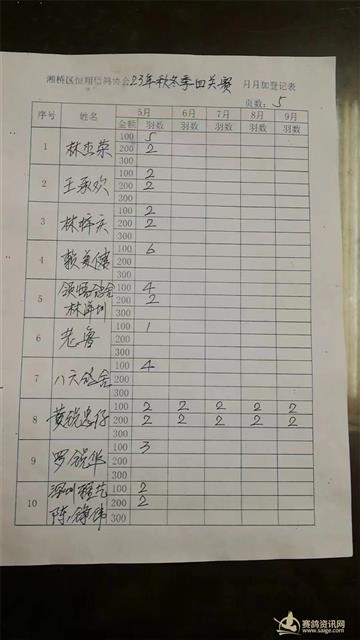 湘桥区恒翔信鸽协会23年秋冬季四关赛 月月加登记表
页数: 5
序号 姓名 5月 6月 7月 8月 9月
金额 羽数 羽数 羽数 羽数 羽数
1 林杰荣 100 5
200 2
300
2 王承欢 100 2
200 2
300
3 林梓庆 100 2
200 2
300
4 100 6
200
300
5 100 4
林 圳 200 2
300
6 老鲁 100 1
200
300
7 八六鸽舍 100 4
200
300
8 黄锐忠仔 100 2 2 2 2 2
200 2 2 2 2 2
300
9 罗锐华 100 3
200
300
10 深圳 100 2
200 2
陈 伟 300
赛鸽资讯网
www.saige.com